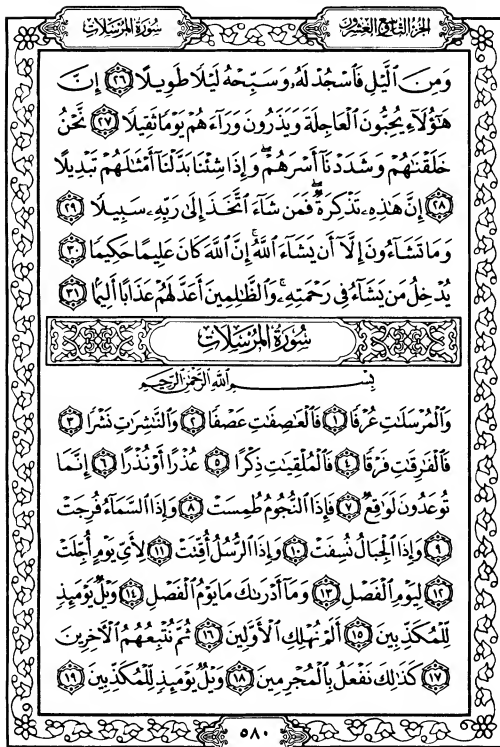 الجزء التاسع والعشرون
سورة المرسلات
وَمِنَ ٱلَّيۡلِ فَٱسۡجُدۡ لَهُۥ وَسَبِّحۡهُ لَيۡلٗا طَوِيلًا ٢٦ إِنَّ
هَٰٓؤُلَآءِ يُحِبُّونَ ٱلۡعَاجِلَةَ وَيَذَرُونَ وَرَآءَهُمۡ يَوۡمٗا ثَقِيلٗا ٢٧ نَّحۡنُ
خَلَقۡنَٰهُمۡ وَشَدَدۡنَآ أَسۡرَهُمۡۖ وَإِذَا شِئۡنَا بَدَّلۡنَآ أَمۡثَٰلَهُمۡ تَبۡدِيلًا
٢٨ إِنَّ هَٰذِهِۦ تَذۡكِرَةٞۖ فَمَن شَآءَ ٱتَّخَذَ إِلَىٰ رَبِّهِۦ سَبِيلٗا ٢٩
وَمَا تَشَآءُونَ إِلَّآ أَن يَشَآءَ ٱللَّهُۚ إِنَّ ٱللَّهَ كَانَ عَلِيمًا حَكِيمٗا ٣٠
يُدۡخِلُ مَن يَشَآءُ فِي رَحۡمَتِهِۦۚ وَٱلظَّٰلِمِينَ أَعَدَّ لَهُمۡ عَذَابًا أَلِيمَۢا ٣١
سورة المرسلات
بِسۡمِ ٱللَّهِ ٱلرَّحۡمَٰنِ ٱلرَّحِيمِ
وَٱلۡمُرۡسَلَٰتِ عُرۡفٗا ١ فَٱلۡعَٰصِفَٰتِ عَصۡفٗا ٢ وَٱلنَّٰشِرَٰتِ نَشۡرٗا ٣
فَٱلۡفَٰرِقَٰتِ فَرۡقٗا ٤ فَٱلۡمُلۡقِيَٰتِ ذِكۡرًا ٥ عُذۡرًا أَوۡ نُذۡرًا ٦ إِنَّمَا
تُوعَدُونَ لَوَٰقِعٞ ٧ فَإِذَا ٱلنُّجُومُ طُمِسَتۡ ٨ وَإِذَا ٱلسَّمَآءُ فُرِجَتۡ
٩ وَإِذَا ٱلۡجِبَالُ نُسِفَتۡ ١٠ وَإِذَا ٱلرُّسُلُ أُقِّتَتۡ ١١ لِأَيِّ يَوۡمٍ أُجِّلَتۡ
١٢ لِيَوۡمِ ٱلۡفَصۡلِ ١٣ وَمَآ أَدۡرَىٰكَ مَا يَوۡمُ ٱلۡفَصۡلِ ١٤ وَيۡلٞ يَوۡمَئِذٖ
لِّلۡمُكَذِّبِينَ ١٥ أَلَمۡ نُهۡلِكِ ٱلۡأَوَّلِينَ ١٦ ثُمَّ نُتۡبِعُهُمُ ٱلۡأٓخِرِينَ
١٧ كَذَٰلِكَ نَفۡعَلُ بِٱلۡمُجۡرِمِينَ ١٨ وَيۡلٞ يَوۡمَئِذٖ لِّلۡمُكَذِّبِينَ ١٩
٥٨٠